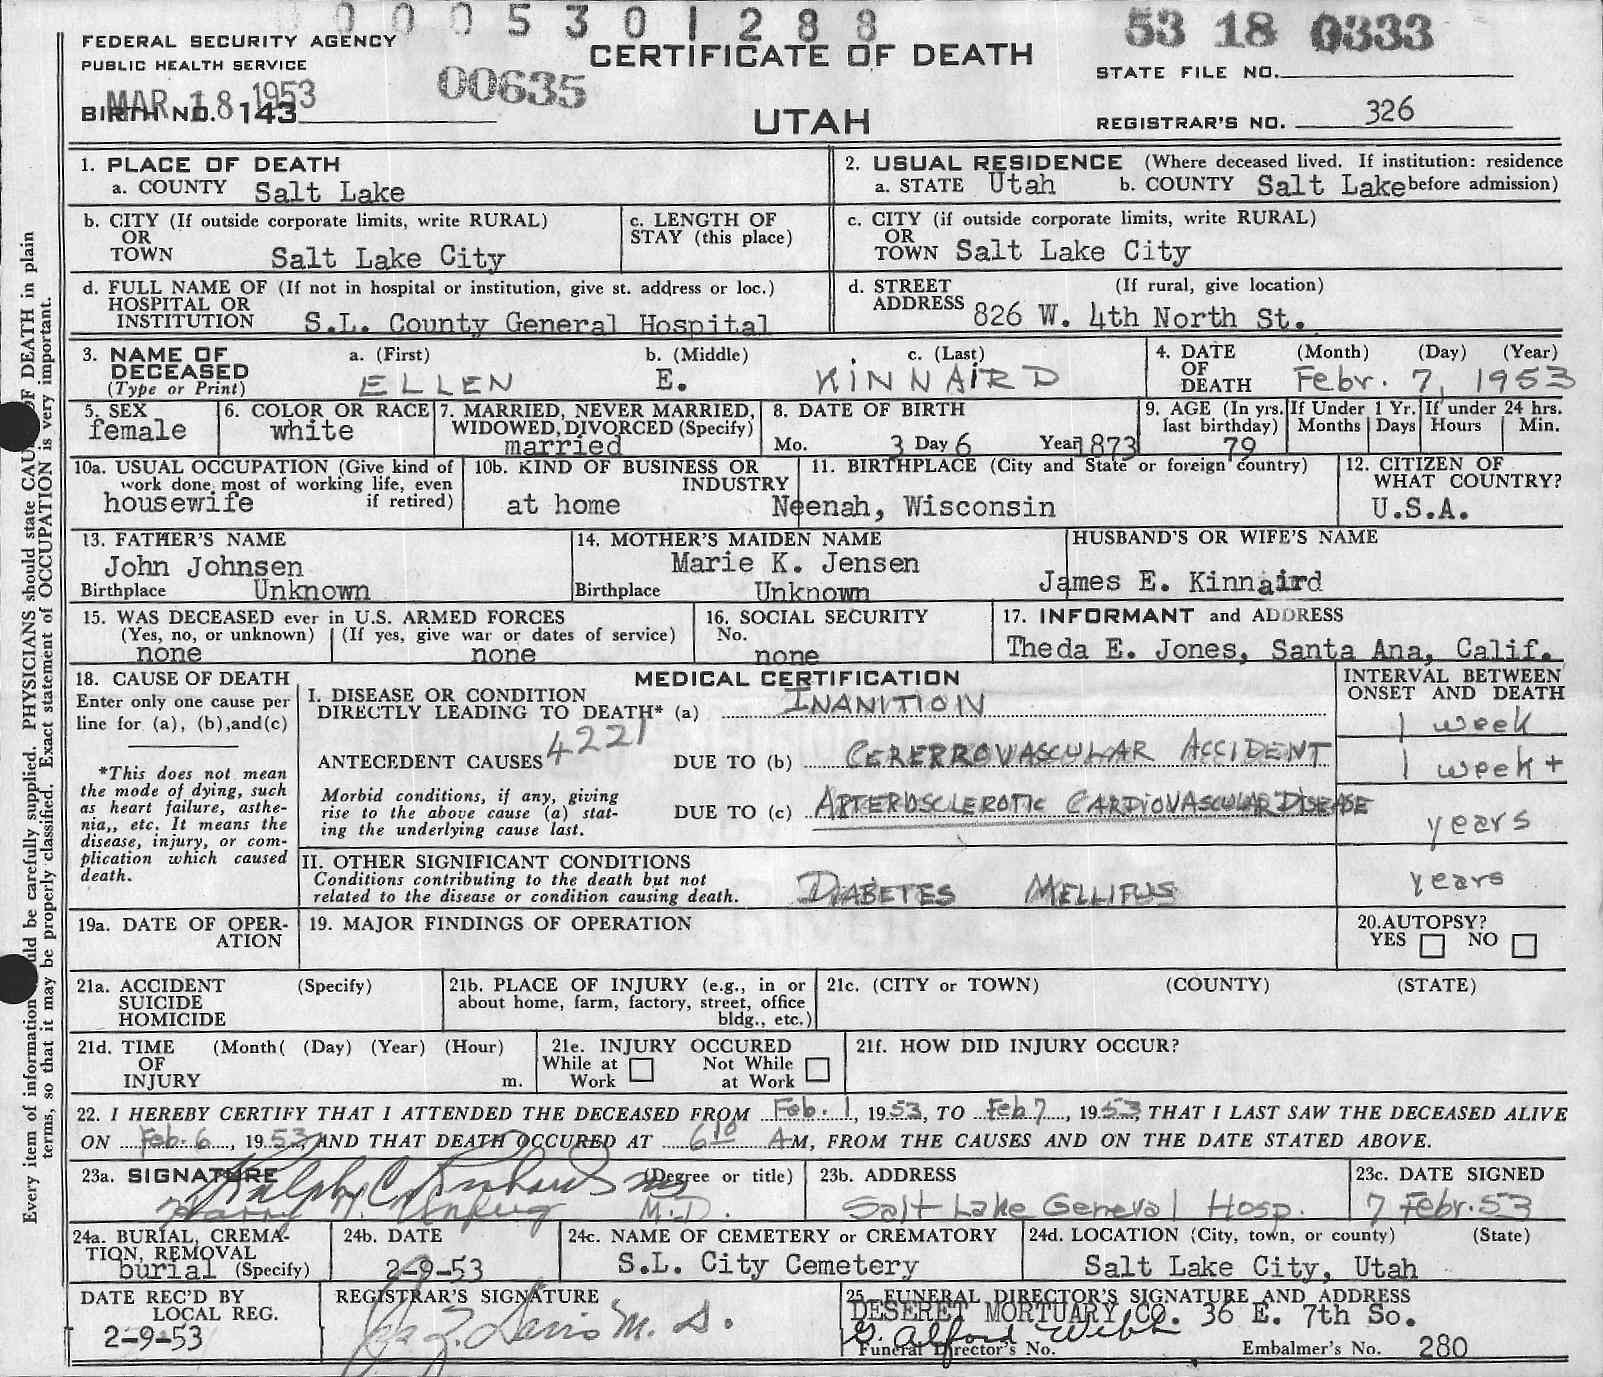 0 0 0 5 3 0 1 2 8 8
53 18 0333
FEDERAL SECURITY AGENCY
PUBLIC HEALTH SERVICE
CERTIFICATE OF DEATH
STATE FILE NO.
MAR 18 1953
00635
BIRTH NO. 143
UTAH
REGISTRAR'S NO. 326
1. PLACE OF DEATH
a. COUNTY Salt Lake
2. USUAL RESIDENCE (Where deceased lived. If institution: residence
a. STATE Utah b. COUNTY Salt Lake before admission)
b. CITY (If outside corporate limits, write RURAL)
OR
TOWN Salt Lake City
c. LENGTH OF
STAY (this place)
c. CITY (if outside corporate limits, write RURAL)
OR
TOWN Salt Lake City
d. FULL NAME OF (If not in hospital or institution, give st. address or loc.)
HOSPITAL OR
INSTITUTION S.L. County General Hospital
d. STREET (If rural, give location)
ADDRESS 826 W. 4th North St.
3. NAME OF DECEASED (Type or Print)
a. (First) b. (Middle) c. (Last)
ELLEN E. KINNAIRD
4. DATE OF DEATH (Month) (Day) (Year)
Febr. 7, 1953
5. SEX
female
6. COLOR OR RACE
white
7. MARRIED, NEVER MARRIED,
WIDOWED, DIVORCED (Specify)
married
8. DATE OF BIRTH
Mo. 3 Day 6 Year 1873
9. AGE (In yrs. last birthday)
79
If Under 1 Yr.
Months Days
If under 24 hrs.
Hours Min.
10a. USUAL OCCUPATION (Give kind of
work done most of working life, even
if retired)
housewife
10b. KIND OF BUSINESS OR
INDUSTRY
at home
11. BIRTHPLACE (City and State or foreign country)
Neenah, Wisconsin
12. CITIZEN OF
WHAT COUNTRY?
U.S.A.
13. FATHER'S NAME
John Johnsen
Birthplace Unknown
14. MOTHER'S MAIDEN NAME
Marie K. Jensen
Birthplace Unknown
HUSBAND'S OR WIFE'S NAME
James E. Kinnaird
15. WAS DECEASED ever in U.S. ARMED FORCES
(Yes, no, or unknown) (If yes, give war or dates of service)
none none
16. SOCIAL SECURITY
No.
none
17. INFORMANT and ADDRESS
Theda E. Jones, Santa Ana, Calif.
18. CAUSE OF DEATH
Enter only one cause per
line for (a), (b),and(c)
*This does not mean
the mode of dying, such
as heart failure, asthe-
nia,, etc. It means the
disease, injury, or com-
plication which caused
death.
MEDICAL CERTIFICATION
I. DISEASE OR CONDITION
DIRECTLY LEADING TO DEATH* (a) INANITION
4221
ANTECEDENT CAUSES DUE TO (b) CERERROVASCULAR ACCIDENT
Morbid conditions, if any, giving
rise to the above cause (a) stat-
ing the underlying cause last.
DUE TO (c) ARTERIOSCLEROTIC CARDIOVASCULAR DISEASE
INTERVAL BETWEEN
ONSET AND DEATH
1 week
1 week +
years
II. OTHER SIGNIFICANT CONDITIONS
Conditions contributing to the death but not
related to the disease or condition causing death.
DIABETES MELLITUS
years
19a. DATE OF OPER-
ATION
19. MAJOR FINDINGS OF OPERATION
20.AUTOPSY?
YES NO
21a. ACCIDENT (Specify)
SUICIDE
HOMICIDE
21b. PLACE OF INJURY (e.g., in or
about home, farm, factory, street, office
bldg., etc.)
21c. (CITY or TOWN) (COUNTY) (STATE)
21d. TIME (Month( (Day) (Year) (Hour)
OF
INJURY m.
21e. INJURY OCCURED
While at Work Not While at Work
21f. HOW DID INJURY OCCUR?
22. I HEREBY CERTIFY THAT I ATTENDED THE DECEASED FROM Feb. 1, 1953, TO Feb 7, 1953, THAT I LAST SAW THE DECEASED ALIVE
ON Feb. 6, 1953, AND THAT DEATH OCCURED AT 6 10 AM, FROM THE CAUSES AND ON THE DATE STATED ABOVE.
23a. SIGNATURE (Degree or title)
Ralph C. Richards MD
Harry M.D.
23b. ADDRESS
Salt Lake General Hosp.
23c. DATE SIGNED
7 Febr. 53
24a. BURIAL, CREMA-
TION, REMOVAL
burial (Specify)
24b. DATE
2-9-53
24c. NAME OF CEMETERY or CREMATORY
S.L. City Cemetery
24d. LOCATION (City, town, or county) (State)
Salt Lake City, Utah
DATE REC'D BY
LOCAL REG.
2-9-53
REGISTRAR'S SIGNATURE
M. D.
25. FUNERAL DIRECTOR'S SIGNATURE AND ADDRESS
DESERET MORTUARY CO. 36 E. 7th So.
G. Alford Webb
Funeral Director's No. Embalmer's No. 280
Every item of information should be carefully supplied. PHYSICIANS should state CAUSE OF DEATH in plain
terms, so that it may be properly classified. Exact statement of OCCUPATION is very important.